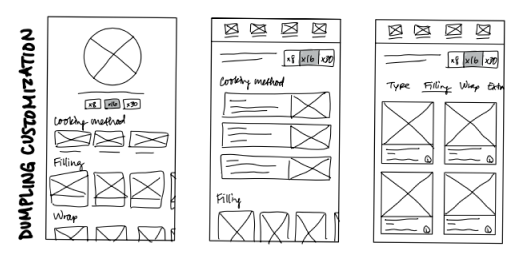 DUMPLING CUSTOMIZATION
x8 x16 x30
Cooking method
Filling
Wrap
x8 x16 x30
Cooking method
Filling
x8 x16 x30
Type Filling Wrap Extra